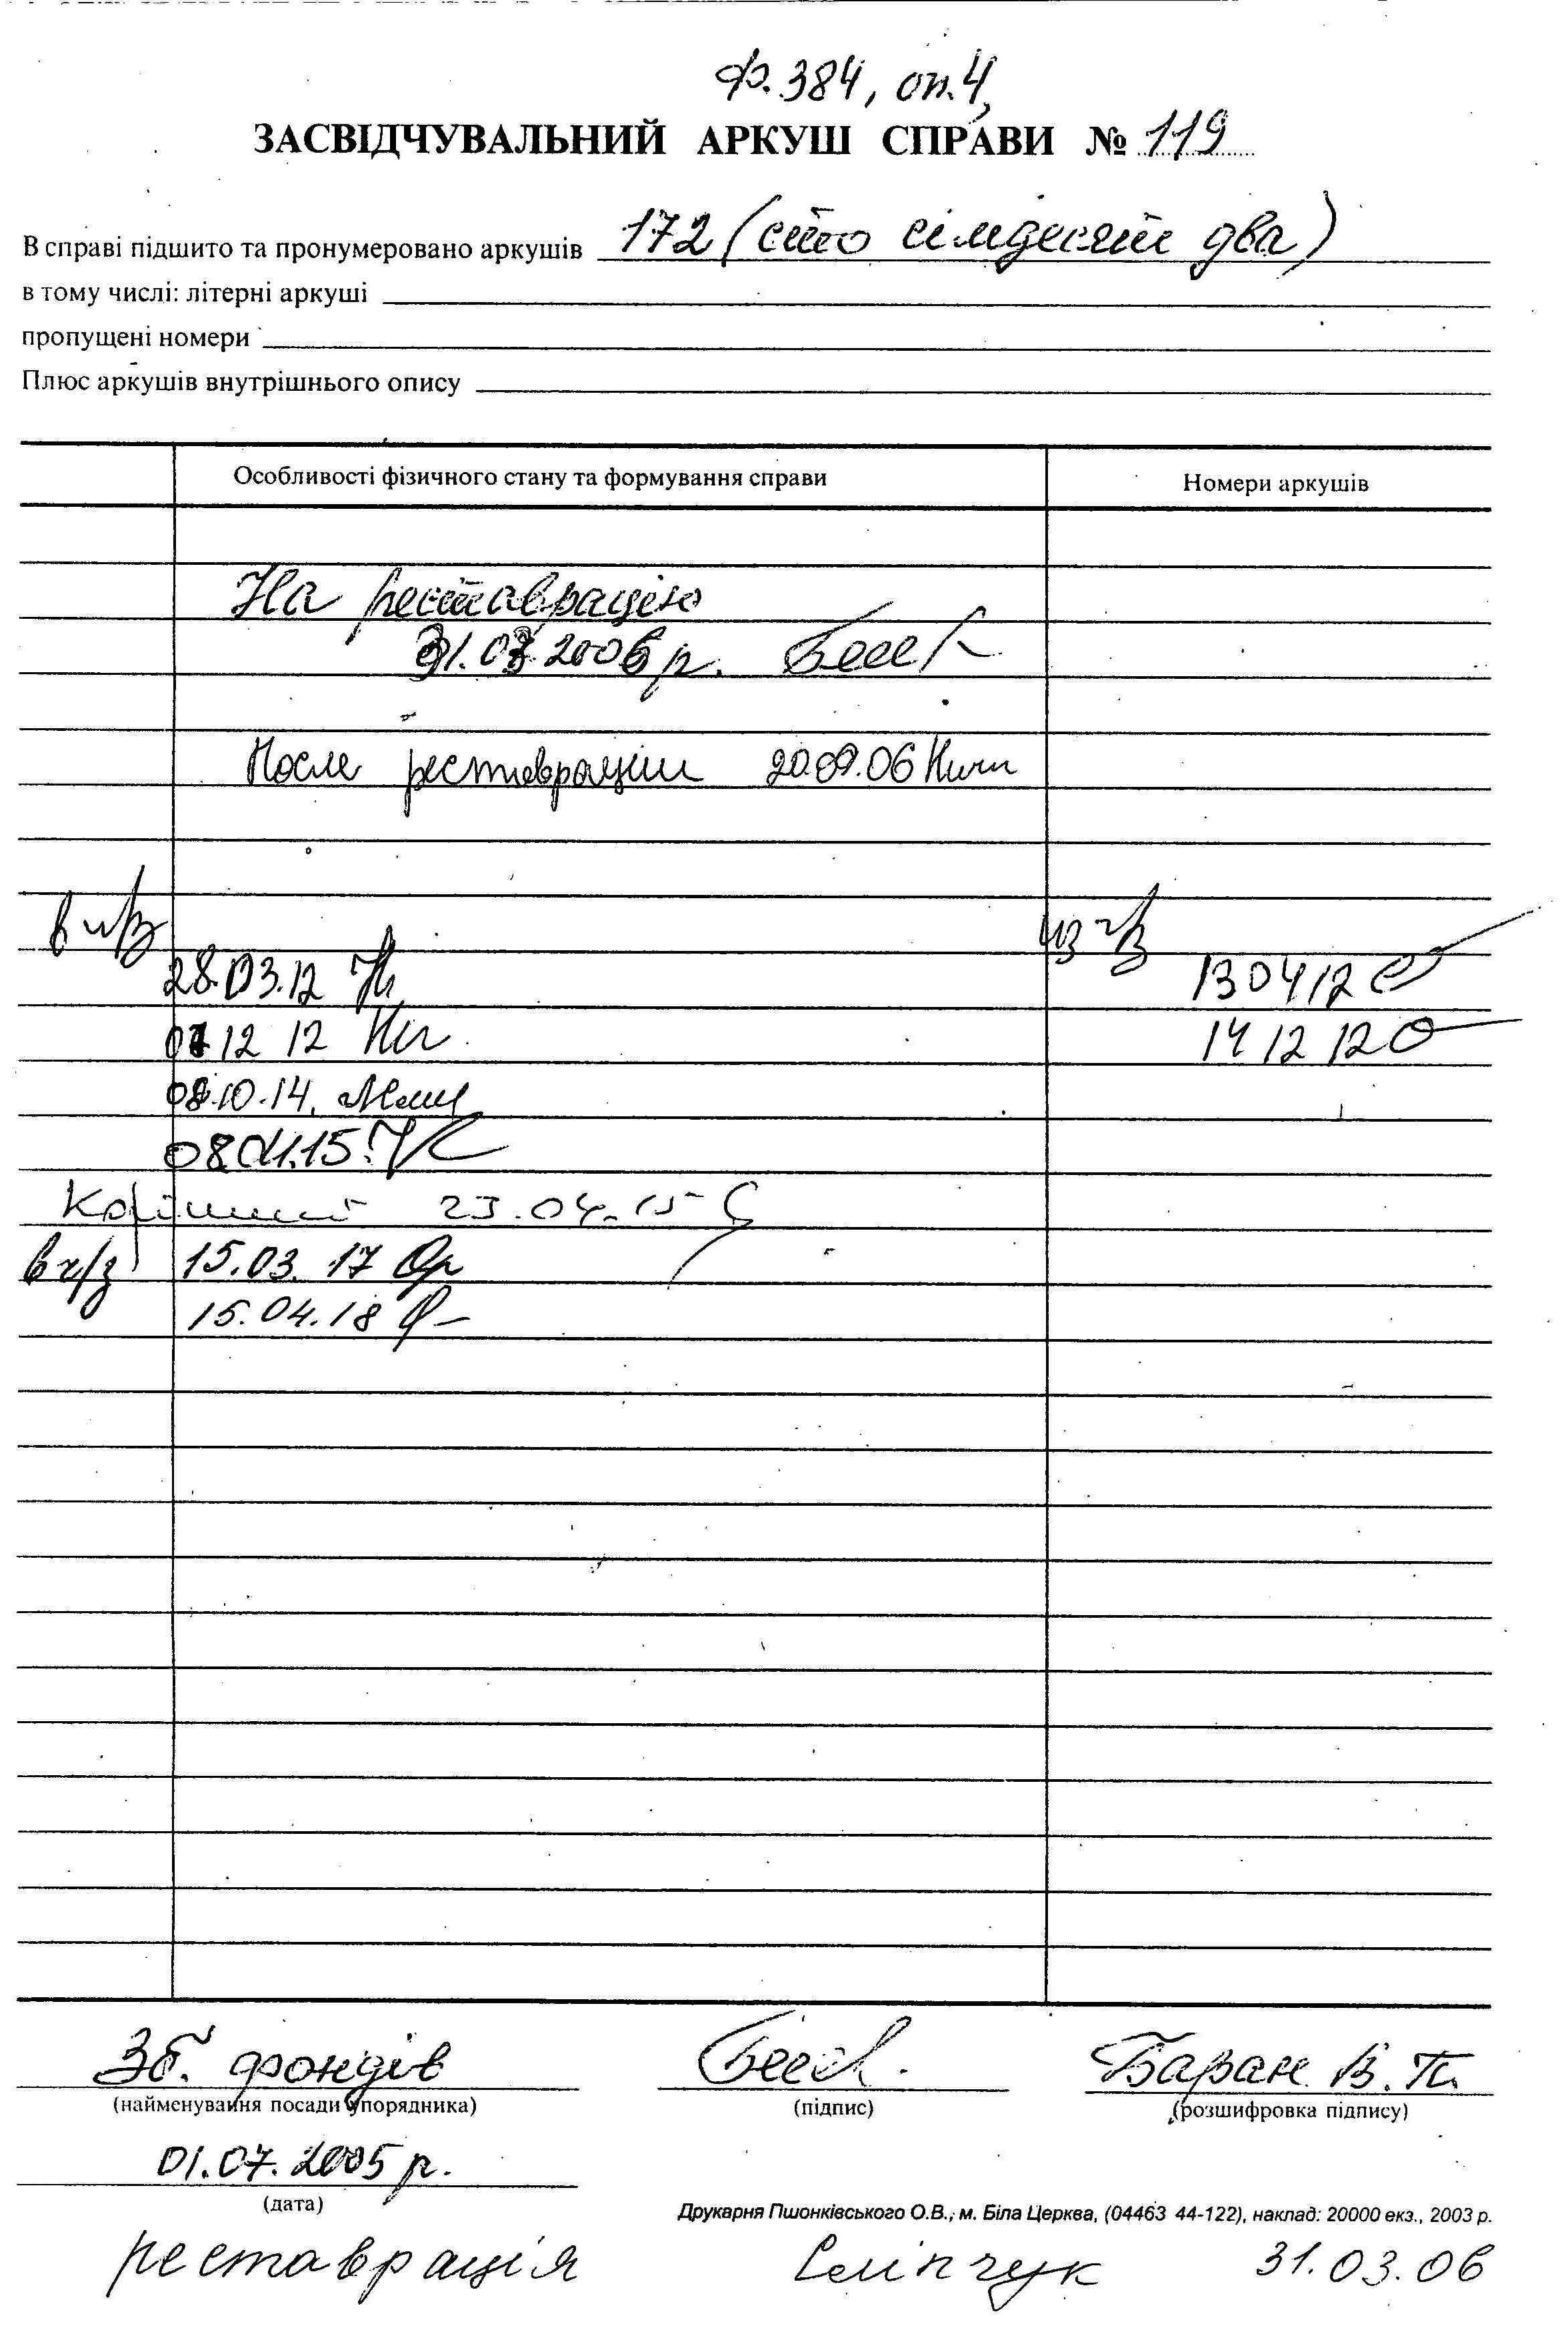 Ф. 384, оп. 4,
ЗАСВІДЧУВАЛЬНИЙ АРКУШ СПРАВИ № 119
В справі підшито та пронумеровано аркушів 172 (сто сімдесят два)
в тому числі: літерні аркуші
пропущені номери
Плюс аркушів внутрішнього опису
Особливості фізичного стану та формування справи Номери аркушів
На реставрацію
31.03.2006 р.
После реставрации 20.09.06
в ч/з из ч/з
28.03.12 13 04 12
12 12 14 12 12
08.10.14.
08.04.15.
23.04.15
в ч/з 15.03.17
15.04.18
Зб. фондів Баран В.П.
(найменування посади упорядника) (підпис) (розшифровка підпису)
01.07.2005 р.
(дата)
Друкарня Пшонківського О.В., м. Біла Церква, (04463 44-122), наклад: 20000 екз., 2003 р.
реставрація 31.03.06